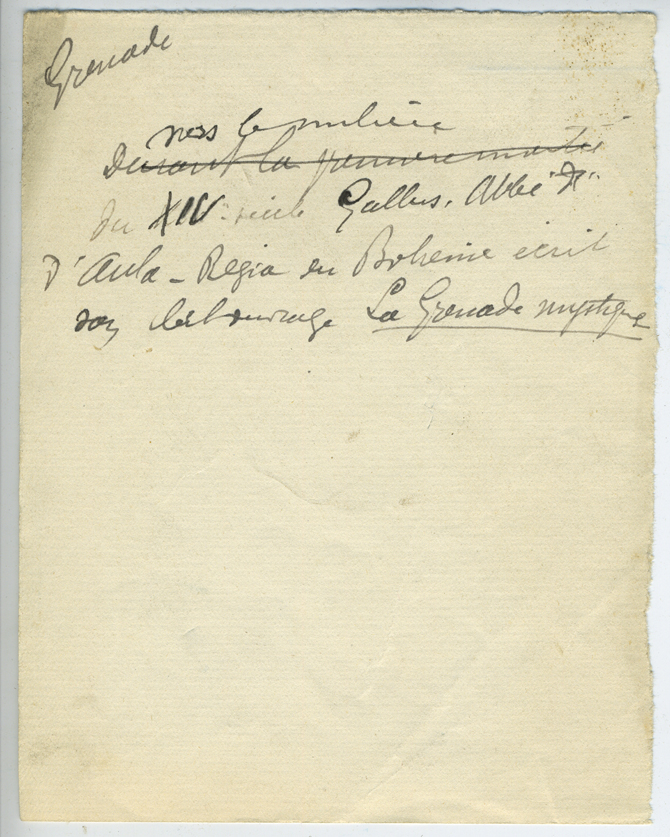 Grenade
vers le milieu
Durant la première moitié
du XIVe siècle Gallus, Abbé d
d'Aula-Regia en Bohème écrit
son ouvrage La Grenade mystique